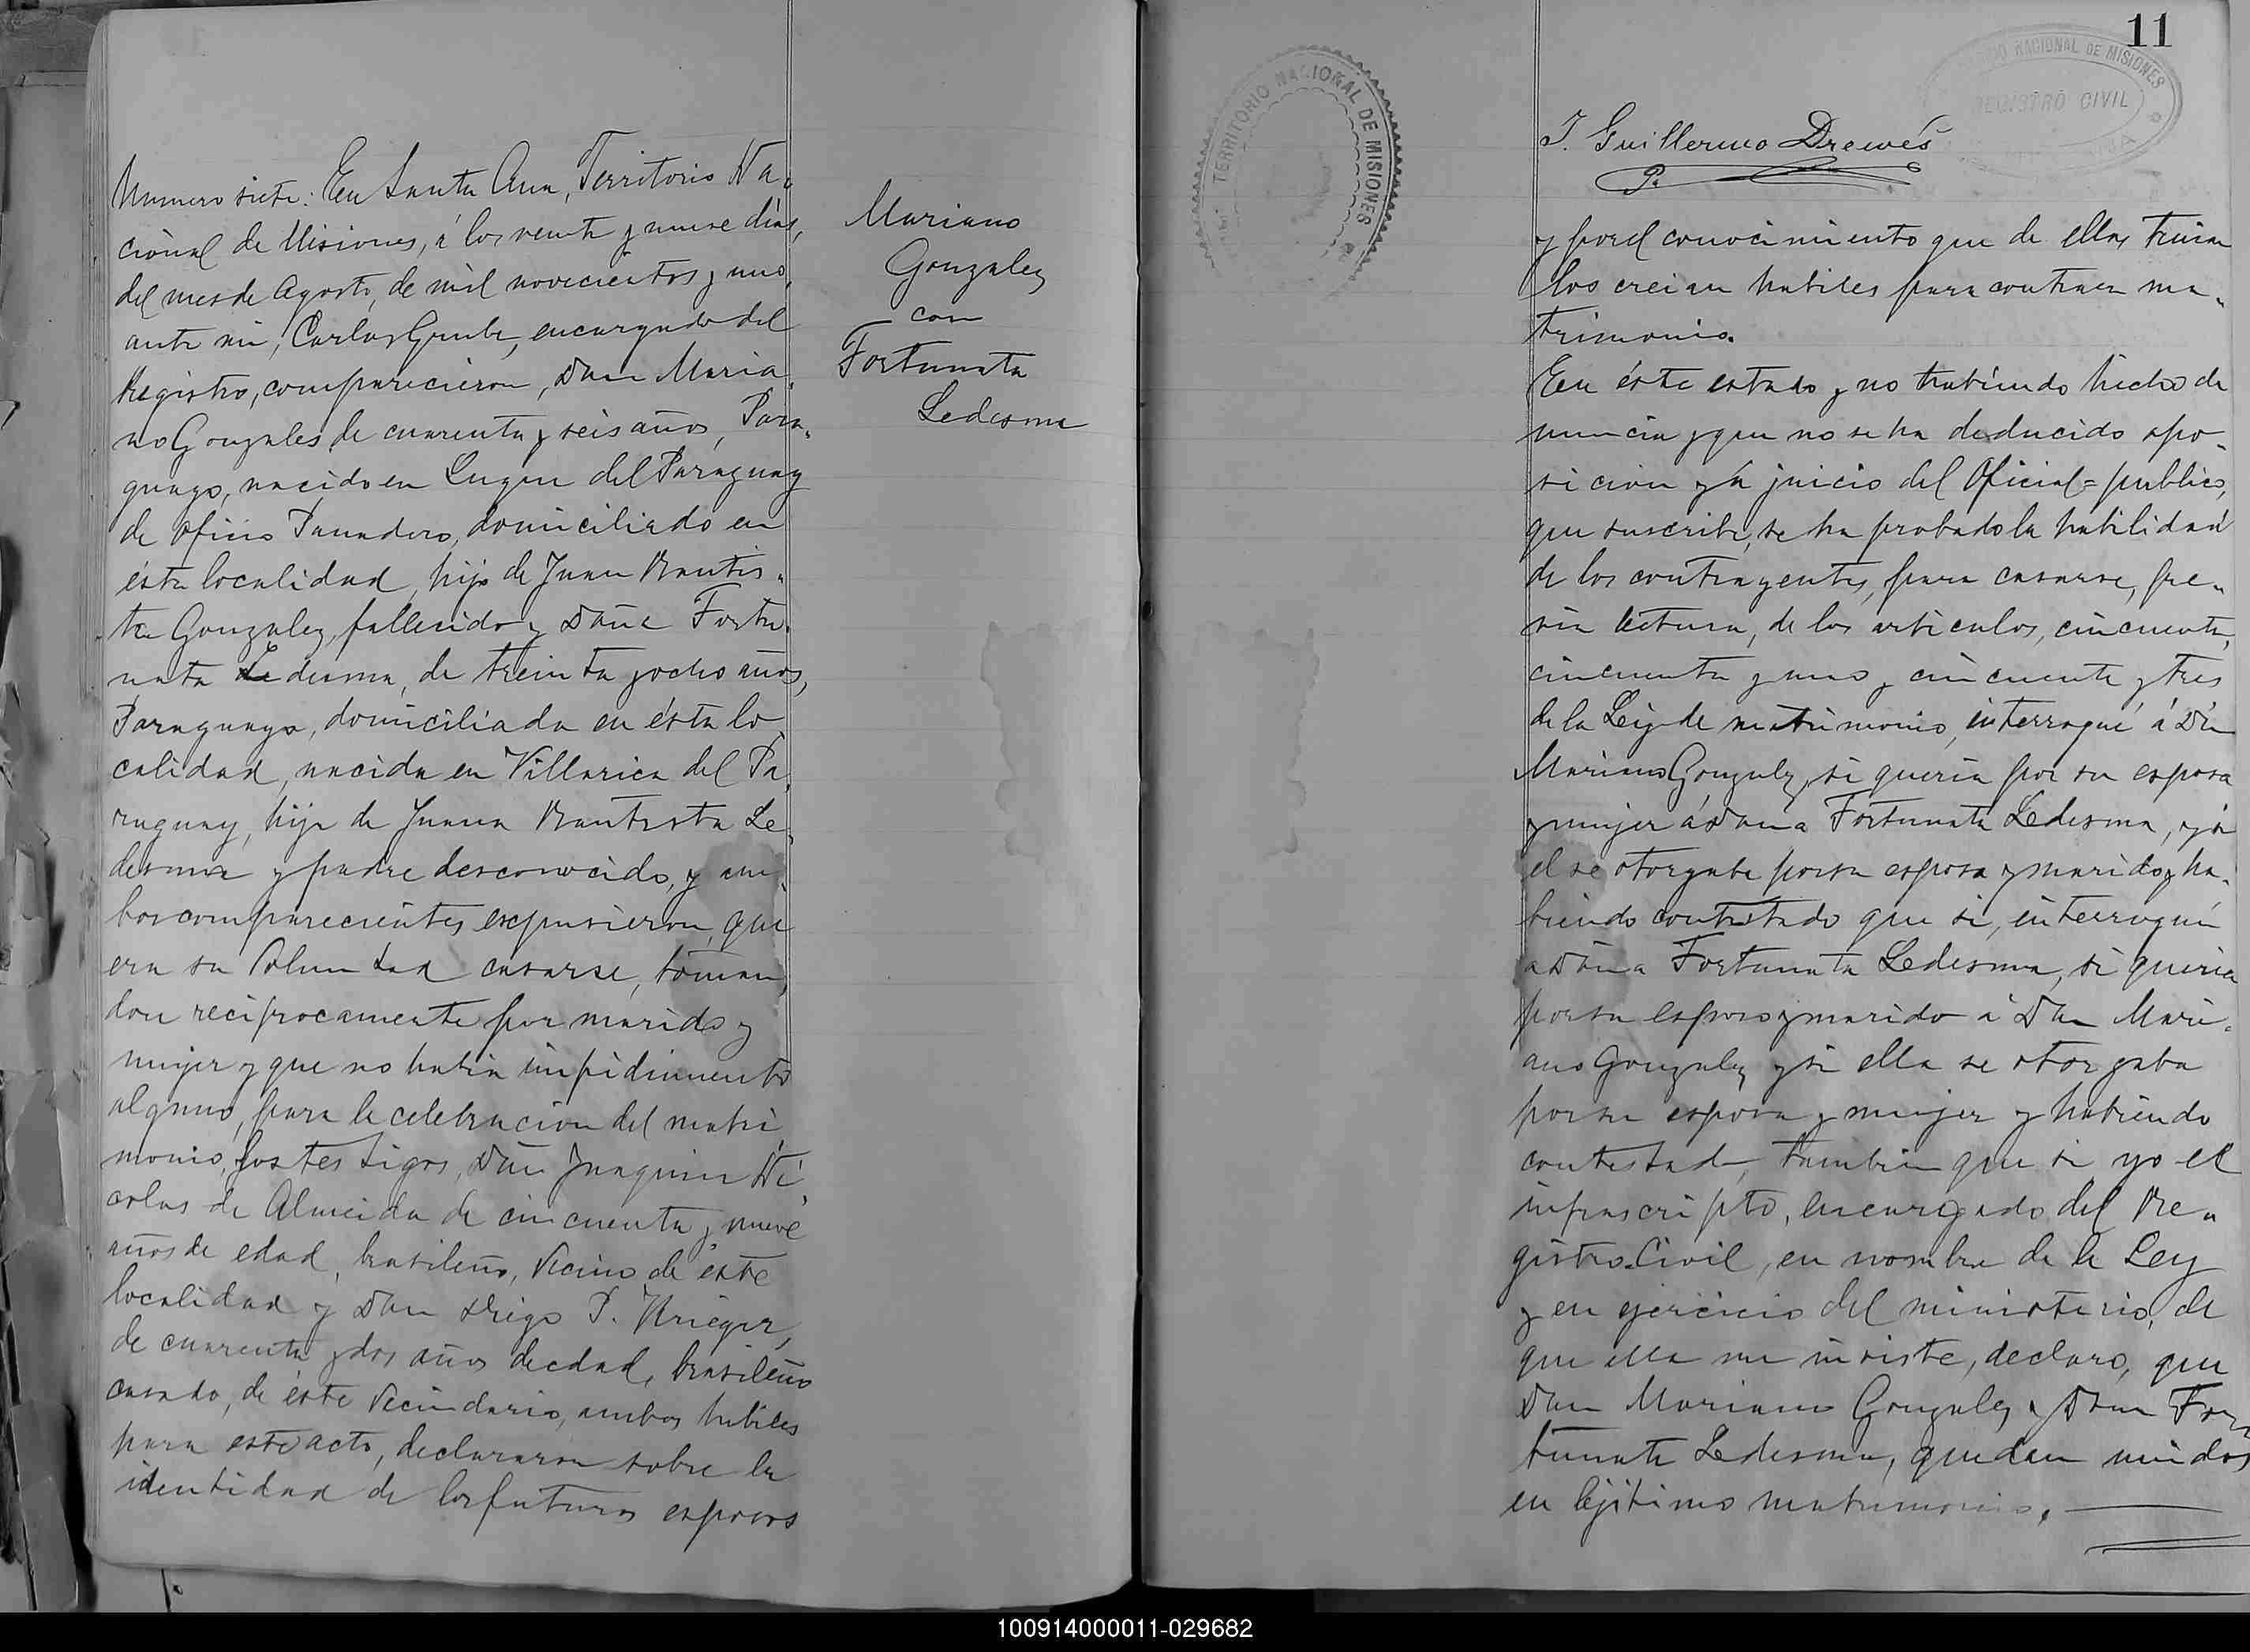 Numero siete: En Santa Ana, Territorio Na-
cional de Misiones, á los veinte y nueve dias,
del mes de Agosto, de mil novecientos y uno,
ante mi, Carlos Grube, encargado del
Registro, comparecieron, Don Maria-
no Gonzales, de cuarenta y seis años, Para-
guayo, nacido en Luque del Paraguay
de oficio Panadero, domiciliado en
ésta localidad, hijo de Juan Bautis-
ta Gonzalez, fallecido y Doña Fortu-
nata Ledesma, de treinta y ocho años,
Paraguaya, domiciliada en ésta lo-
calidad, nacida en Villarica del Pa-
raguay, hija de Juana Bautista Le-
desma y padre desconocido, y am-
bos comparecientes expusieron, que
era su voluntad casarse, toman-
dose reciprocamente por marido y
mujer y que no habia impidimento
alguno, para la celebracion del matri-
monio, los testigos, Don Juaquin Ni-
colas de Almeida de cincuenta y nueve
años de edad, brasileño, vecino de ésta
localidad y Don Diego P. Krieger,
de cuarenta y dos años de edad, brasileño
casado, de éste vecindario, ambos habiles
para este acto, declararon sobre la
identidad de los futuros esposos
Mariano
Gonzalez
con
Fortunata
Ledesma
TERRITORIO NACIONAL DE MISIONES
11
NACIONAL DE MISIONES
REGISTRO CIVIL
J. Guillermo Drewes
P.
y por el conocimiento que de ellos tenian
los creian habiles para contraer ma-
trimonio.
En éste estado y no habiendo hecho de
nuncia y que no se ha deducido opo-
sicion y á juicio del Oficial=publico,
que suscribe, se ha probado la habilidad
de los contrayentes, para casarse, pre-
via letura, de los articulos, cincuenta,
cincuenta y uno y cincuenta y tres
de la Ley de matrimonio, interrogué á Dn
Mariano Gonzalez, si queria por su esposa
y mujer á Dona Fortunata Ledesma, y si
el se otorgaba por su esposo y marido y ha-
biendo contestado que si, interrogué
a Dona Fortunata Ledesma, si queria
por su esposo y marido á Don Mari-
ano Gonzalez y si ella se otorgaba
por su esposa y mujer y habiendo
contestado, tambien que si yo el
infrascripto, encargado del Re-
gistro Civil, en nombre de la Ley
y en ejercicio del ministerio, de
que ella me inviste, declaro, que
Don Mariano Gonzalez y Dona For-
tunata Ledesma, quedan unidos
en lejitimo matrimonio.
100914000011-029682